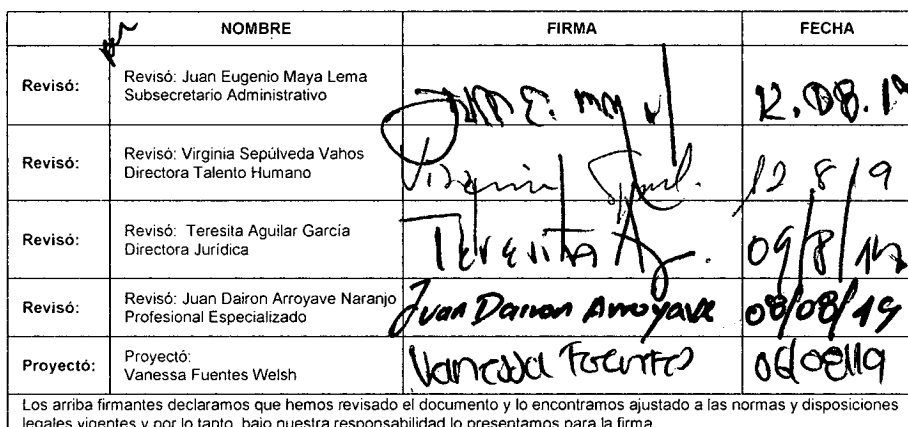 NOMBRE FIRMA FECHA
Revisó: Revisó: Juan Eugenio Maya Lema
Subsecretario Administrativo
12.08.19
Revisó: Revisó: Virginia Sepúlveda Vahos
Directora Talento Humano
Virginia
12 8/19
Revisó: Revisó: Teresita Aguilar García
Directora Jurídica
Teresita A
09/8/19
Revisó: Revisó: Juan Dairon Arroyave Naranjo
Profesional Especializado
Juan Dairon Arroyave 08/08/19
Proyectó: Proyectó:
Vanessa Fuentes Welsh
Vanessa Fuentes
Los arriba firmantes declaramos que hemos revisado el documento y lo encontramos ajustado a las normas y disposiciones
legales vigentes y por lo tanto, bajo nuestra responsabilidad lo presentamos para la firma